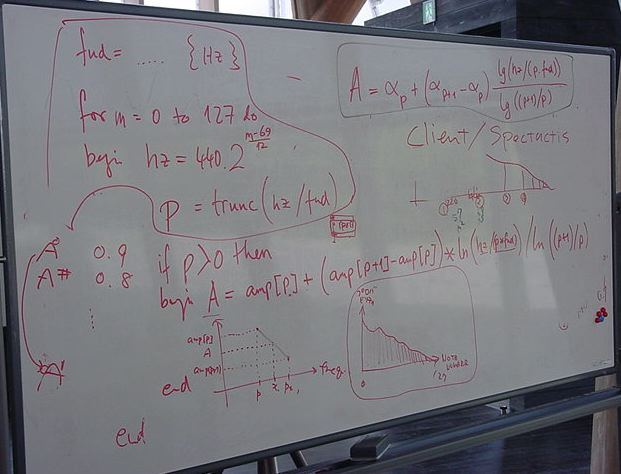 fud = ..... {Hz}
for m = 0 to 127 do
begin hz = 440.2^(m-69)/12
p = trunc(hz/fud)
A = αp + (αp+1 - αp) lg(hz/(p.fud)) / lg((p+1)/p)
Client/Spectactis
A 0.9
A# 0.8
⋮
if p>0 then
begin A = amp[p] + (amp[p+1]-amp[p]) * ln(hz/(p*fud)) / ln((p+1)/p)
amp[p]
A
freq.
p
end
NOTE
NUMBER
127
0
end